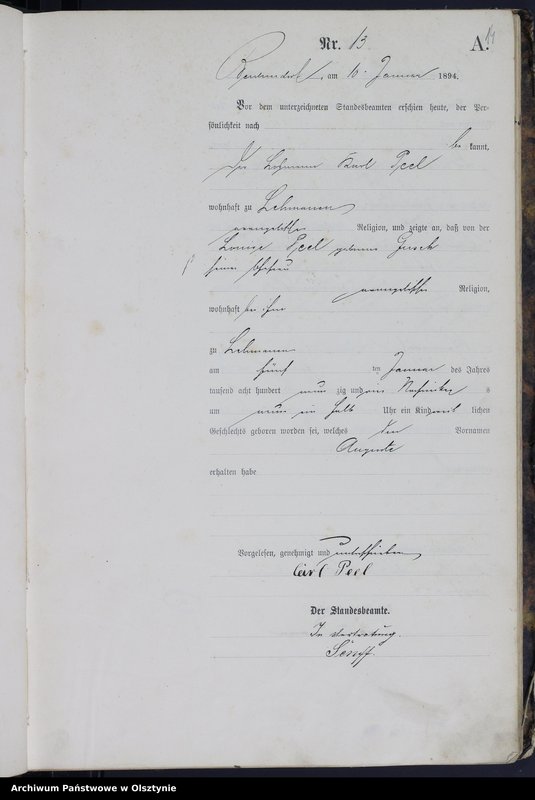 Nr. 13
A.
am 10. Januar 1894.
Vor dem unterzeichneten Standesbeamten erschien heute, der Per-
sönlichkeit nach
be kannt,
der Losmann Karl Peel
wohnhaft zu Lehmanen
evangelischer Religion, und zeigte an, daß von der
Louise Peel geborene
seiner Ehefrau
evangelischer Religion,
wohnhaft bei ihm
zu Lehmanen
am fünf ten Januar des Jahres
tausend acht hundert neun zig und vier Nachmittag s
um neun ein halb Uhr ein Kind weib lichen
Geschlechts geboren worden sei, welches den Vornamen
Auguste
erhalten habe
Vorgelesen, genehmigt und unterschrieben
Carl Peel
Der Standesbeamte.
In Vertretung.
Archiwum Państwowe w Olsztynie